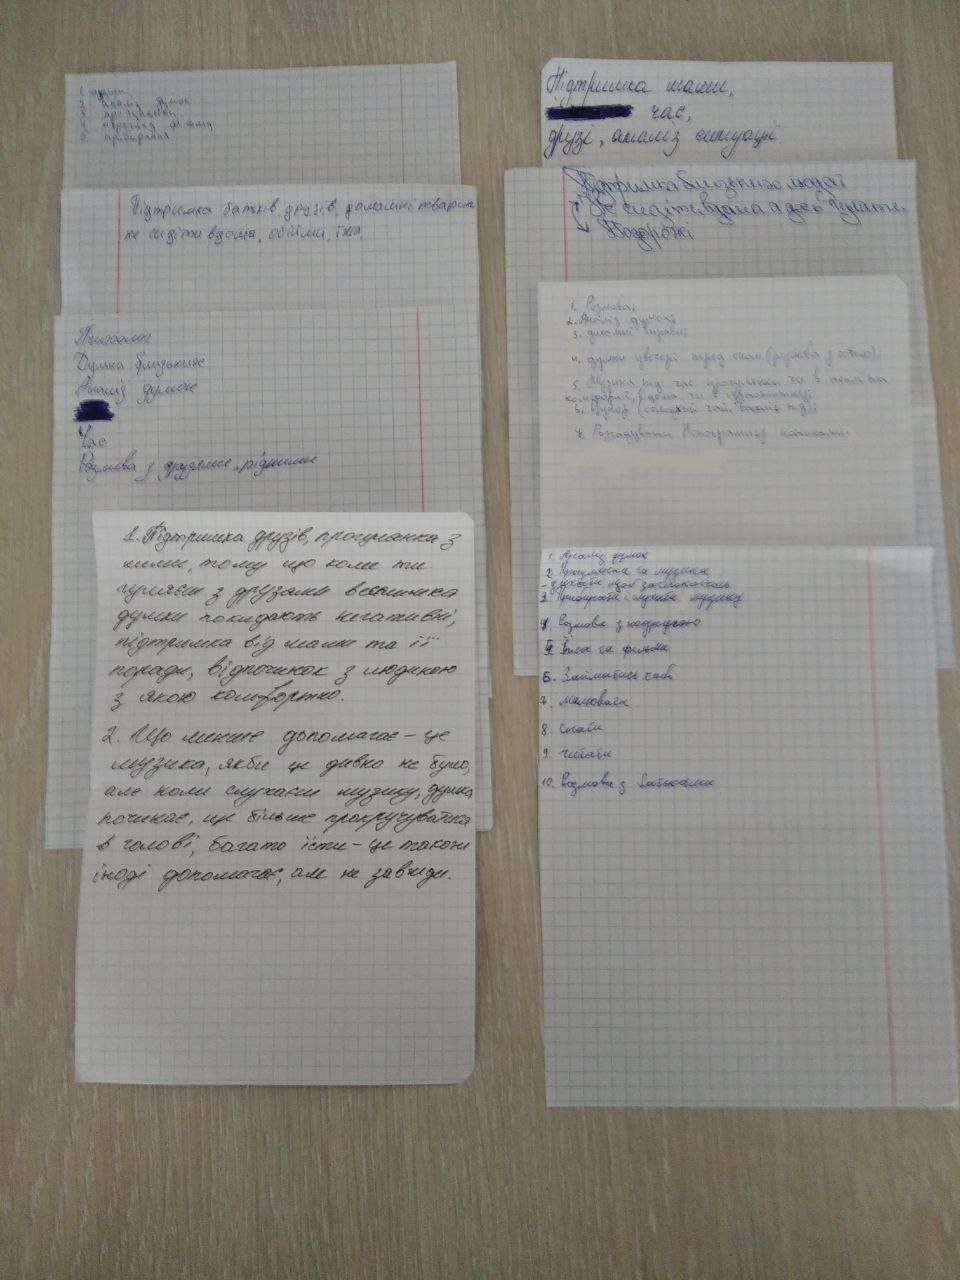 2 аналіз думок
3 прогулянки
4 перегляд фільму
5 прибирання
Підтримка батків, друзів, домашні тварини
не сидіти вдома, обійми, їжа,
Психолог
Думка близьких
Аналіз думок
Час
Розмова з друзями, рідними
1. Підтримка друзів, прогулянка з
ними, тому що коли ти
гуляєш з друзами
думки покидають негативні,
підтримка від мами та її
поради, відпочинок з людиною
з якою комфортно.
2. Що менше допомагає – це
музика, якби це дивно не було,
але коли слухаєш музику, думка
починає, ще більше прокручуватися
в голові, багато їсти – це також
іноді допомагає, але не завжди.
Підтримка мами,
час,
друзі, аналіз ситуації.
Підтримка близьких людей
Не сидіти вдома а десь гуляти
Подорожі
1. Розмова,
2. Аналіз думок,
3. дихальні вправи
4. думки увечері перед сном (розмова з собою)
5. Музика під час прогулянки чи в
комфорті, вдома чи в
6. (солодкий чай
7. Розгадувати
1. Аналіз думок
2. Прогулянка та музика
- дихати щоб заспокоїтись
3. Прибирати і слухати музику
4. Розмова з подругою
5. Їжа та фільми
6. Займатись хобі
7. малювати
8. Спати
9. читати
10. Розмова з батьками